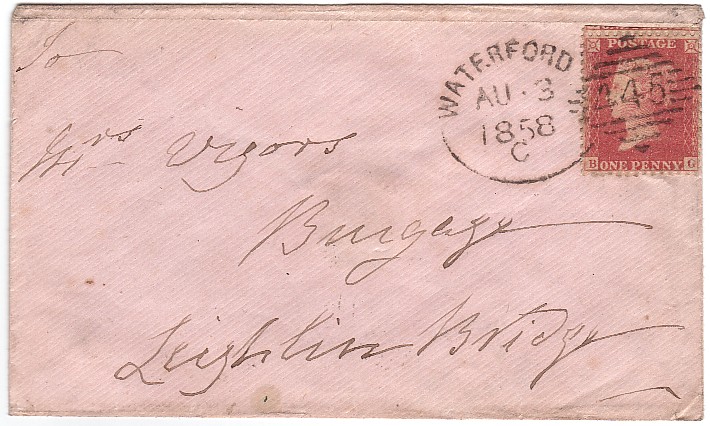 To
Mrs Vigors
Burgage
Leighlin Bridge
WATERFORD
AU 3
1858
C
POSTAGE
445
B ONE PENNY G